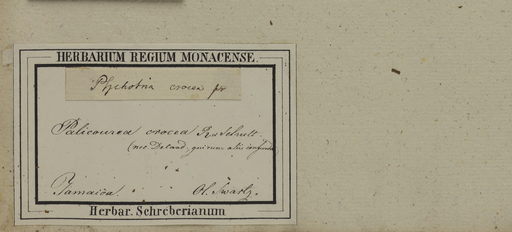 HERBARIUM REGIUM MONACENSE.
Psychotria crocea
Palicourea crocea R. et Schult.
(nec Decand., qui cum aliis confundit
Jamaica. Ol. Swartz.
Herbar. Schreberianum